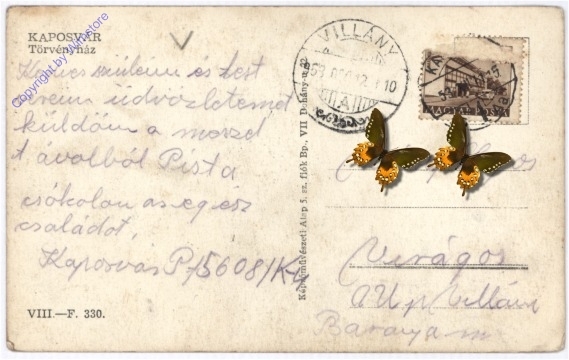 KAPOSVÁR
Törvényház
Copyright by Wnbstore
Kedves szüleim és test
vereim üdvözletemet
küldöm a messzi
távolból Pista
csókolom az egész
családot,
Kaposvár Pf 5608/K
VIII.—F. 330.
Képzőművészeti Alap 5. sz. fiók Bp., VII Dohány-u. 22
VILLÁNY
MAGYAR POSTA
Virágos
U. p. Villány
Baranya m